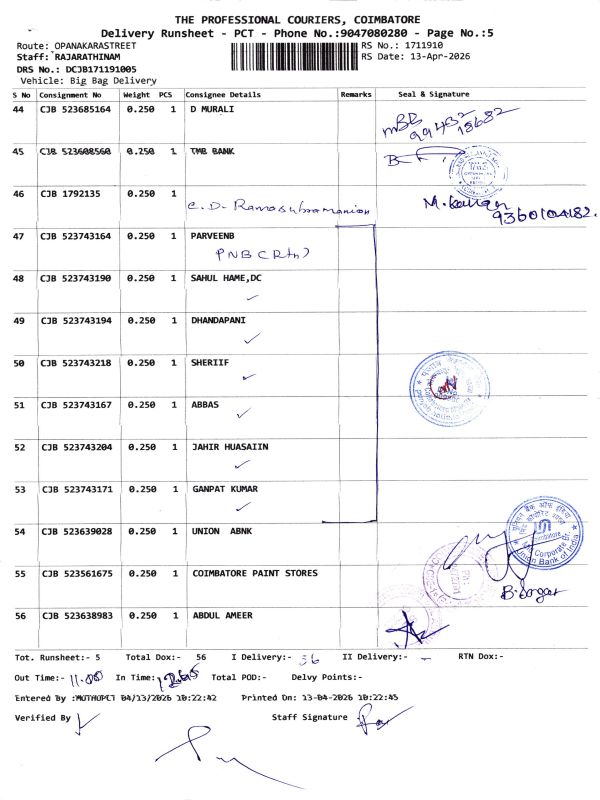 THE PROFESSIONAL COURIERS, COIMBATORE
Delivery Runsheet - PCT - Phone No.:9047080280 - Page No.:5
Route: OPANAKARASTREET
RS No.: 1711910
Staff: RAJARATHINAM
RS Date: 13-Apr-2026
DRS No.: DCJB171191005
Vehicle: Big Bag Delivery
S No Consignment No Weight PCS Consignee Details Remarks Seal & Signature
44 CJB 523685164 0.250 1 D MURALI
mBB
99432 18682
45 CJB 523608560 0.250 1 TMB BANK
46 CJB 1792135 0.250 1
C.D. Ramashbramanian
M. Kannan
9360104182.
47 CJB 523743164 0.250 1 PARVEENB
PNB C Rtn)
48 CJB 523743190 0.250 1 SAHUL HAME,DC
49 CJB 523743194 0.250 1 DHANDAPANI
50 CJB 523743218 0.250 1 SHERIIF
51 CJB 523743167 0.250 1 ABBAS
52 CJB 523743204 0.250 1 JAHIR HUASAIIN
53 CJB 523743171 0.250 1 GANPAT KUMAR
54 CJB 523639028 0.250 1 UNION ABNK
यूनियन बैंक ऑफ इंडिया
Coimbatore
Corporate Br.
Union Bank of India
55 CJB 523561675 0.250 1 COIMBATORE PAINT STORES
56 CJB 523638983 0.250 1 ABDUL AMEER
Tot. Runsheet:- 5 Total Dox:- 56 I Delivery:- 56 II Delivery:- - RTN Dox:-
Out Time:- 11.00 In Time: Total POD:- Delvy Points:-
Entered By :MUTHUPCT 04/13/2026 10:22:42 Printed On: 13-04-2026 10:22:45
Verified By
Staff Signature